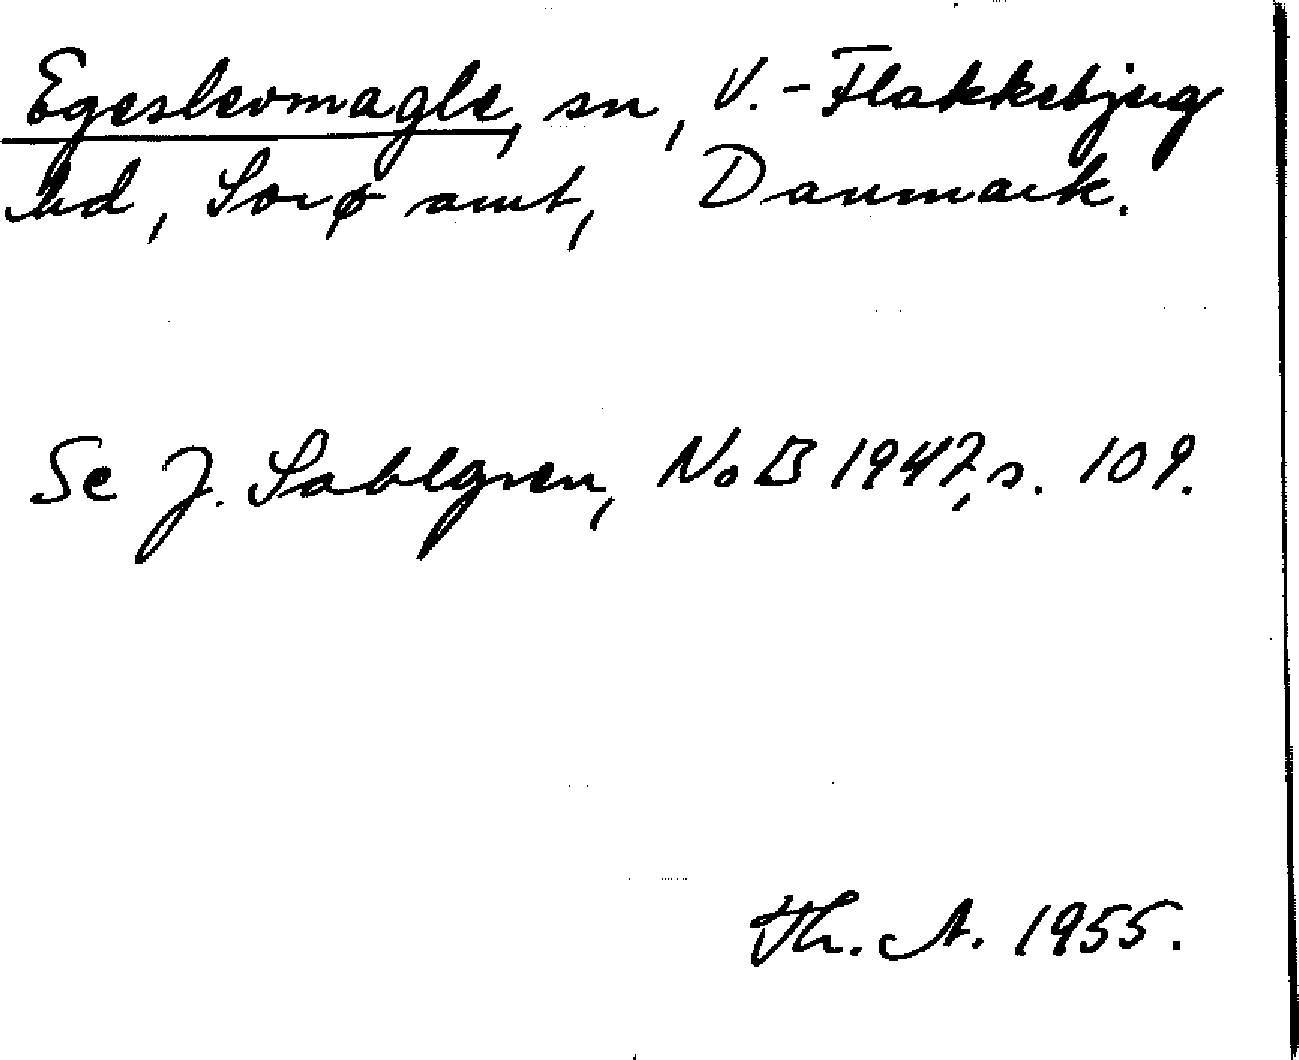 Egeslevmagle, sn, V.-Flakkebjerg
hd, Sorø amt, Danmark.
Se J. Sahlgren, NoB 1947, s. 109.
Th. A. 1955.